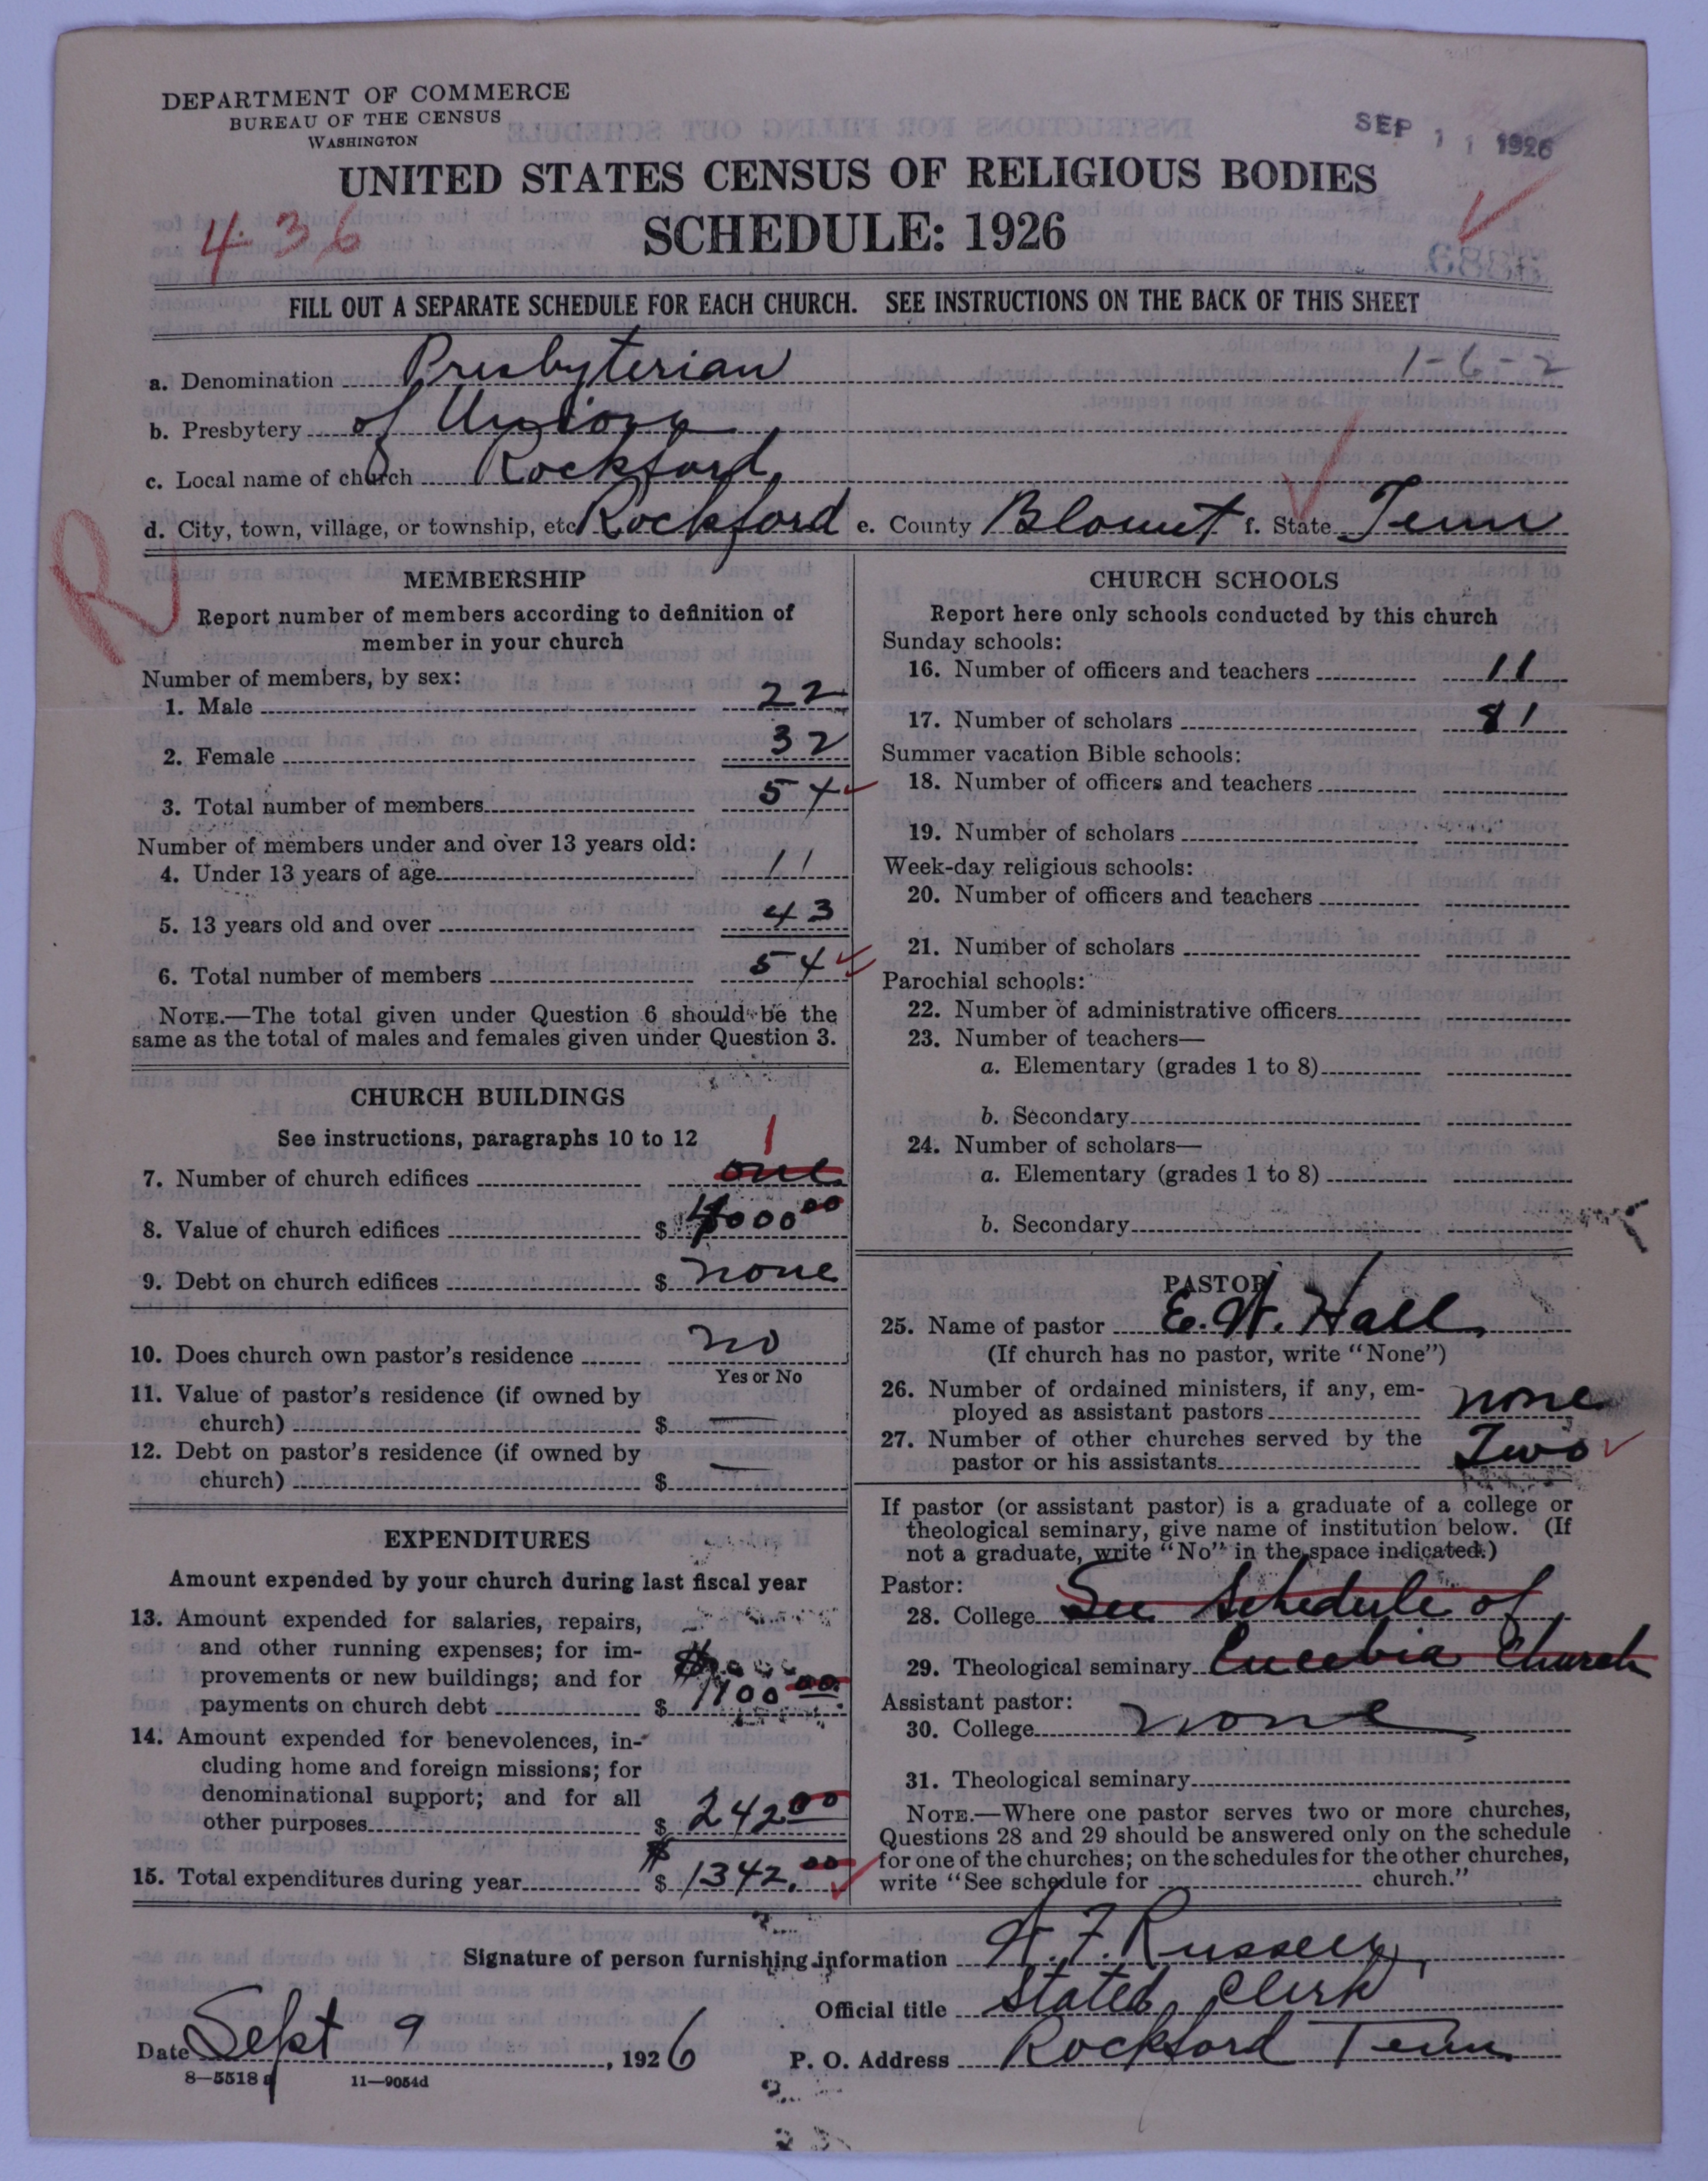 DEPARTMENT OF COMMERCE
BUREAU OF THE CENSUS
WASHINGTON
SEP 11 1926
UNITED STATES CENSUS OF RELIGIOUS BODIES
SCHEDULE: 1926
436
FILL OUT A SEPARATE SCHEDULE FOR EACH CHURCH. SEE INSTRUCTIONS ON THE BACK OF THIS SHEET
a. Denomination Presbyterian 1-6-2
b. Presbytery of Union
c. Local name of church Rockford
d. City, town, village, or township, etc Rockford e. County Blount f. State Tenn
R
MEMBERSHIP
Report number of members according to definition of
member in your church
Number of members, by sex:
1. Male 22
2. Female 32
3. Total number of members 54
Number of members under and over 13 years old:
4. Under 13 years of age 11
5. 13 years old and over 43
6. Total number of members 54
NOTE.—The total given under Question 6 should be the
same as the total of males and females given under Question 3.
CHURCH BUILDINGS
See instructions, paragraphs 10 to 12
1
7. Number of church edifices one
8. Value of church edifices $ 4000 00
9. Debt on church edifices $ none
10. Does church own pastor's residence no
Yes or No
11. Value of pastor's residence (if owned by
church) $ —
12. Debt on pastor's residence (if owned by
church) $ —
EXPENDITURES
Amount expended by your church during last fiscal year
13. Amount expended for salaries, repairs,
and other running expenses; for im-
provements or new buildings; and for
payments on church debt $ 1100 00
14. Amount expended for benevolences, in-
cluding home and foreign missions; for
denominational support; and for all
other purposes $ 242 00
15. Total expenditures during year $ 1342.00
CHURCH SCHOOLS
Report here only schools conducted by this church
Sunday schools:
16. Number of officers and teachers 11
17. Number of scholars 81
Summer vacation Bible schools:
18. Number of officers and teachers
19. Number of scholars
Week-day religious schools:
20. Number of officers and teachers
21. Number of scholars
Parochial schools:
22. Number of administrative officers
23. Number of teachers—
a. Elementary (grades 1 to 8)
b. Secondary
24. Number of scholars—
a. Elementary (grades 1 to 8)
b. Secondary
PASTOR
25. Name of pastor E. W. Hall
(If church has no pastor, write "None")
26. Number of ordained ministers, if any, em-
ployed as assistant pastors none
27. Number of other churches served by the
pastor or his assistants Two
If pastor (or assistant pastor) is a graduate of a college or
theological seminary, give name of institution below. (If
not a graduate, write "No" in the space indicated.)
Pastor:
28. College See Schedule of
29. Theological seminary Eusebia Church
Assistant pastor:
30. College none
31. Theological seminary
NOTE.—Where one pastor serves two or more churches,
Questions 28 and 29 should be answered only on the schedule
for one of the churches; on the schedules for the other churches,
write "See schedule for church."
Signature of person furnishing information Russell
Official title Stated Clerk
Date Sept 9, 1926 P. O. Address Rockford Tenn
8—5518 a 11—9054d